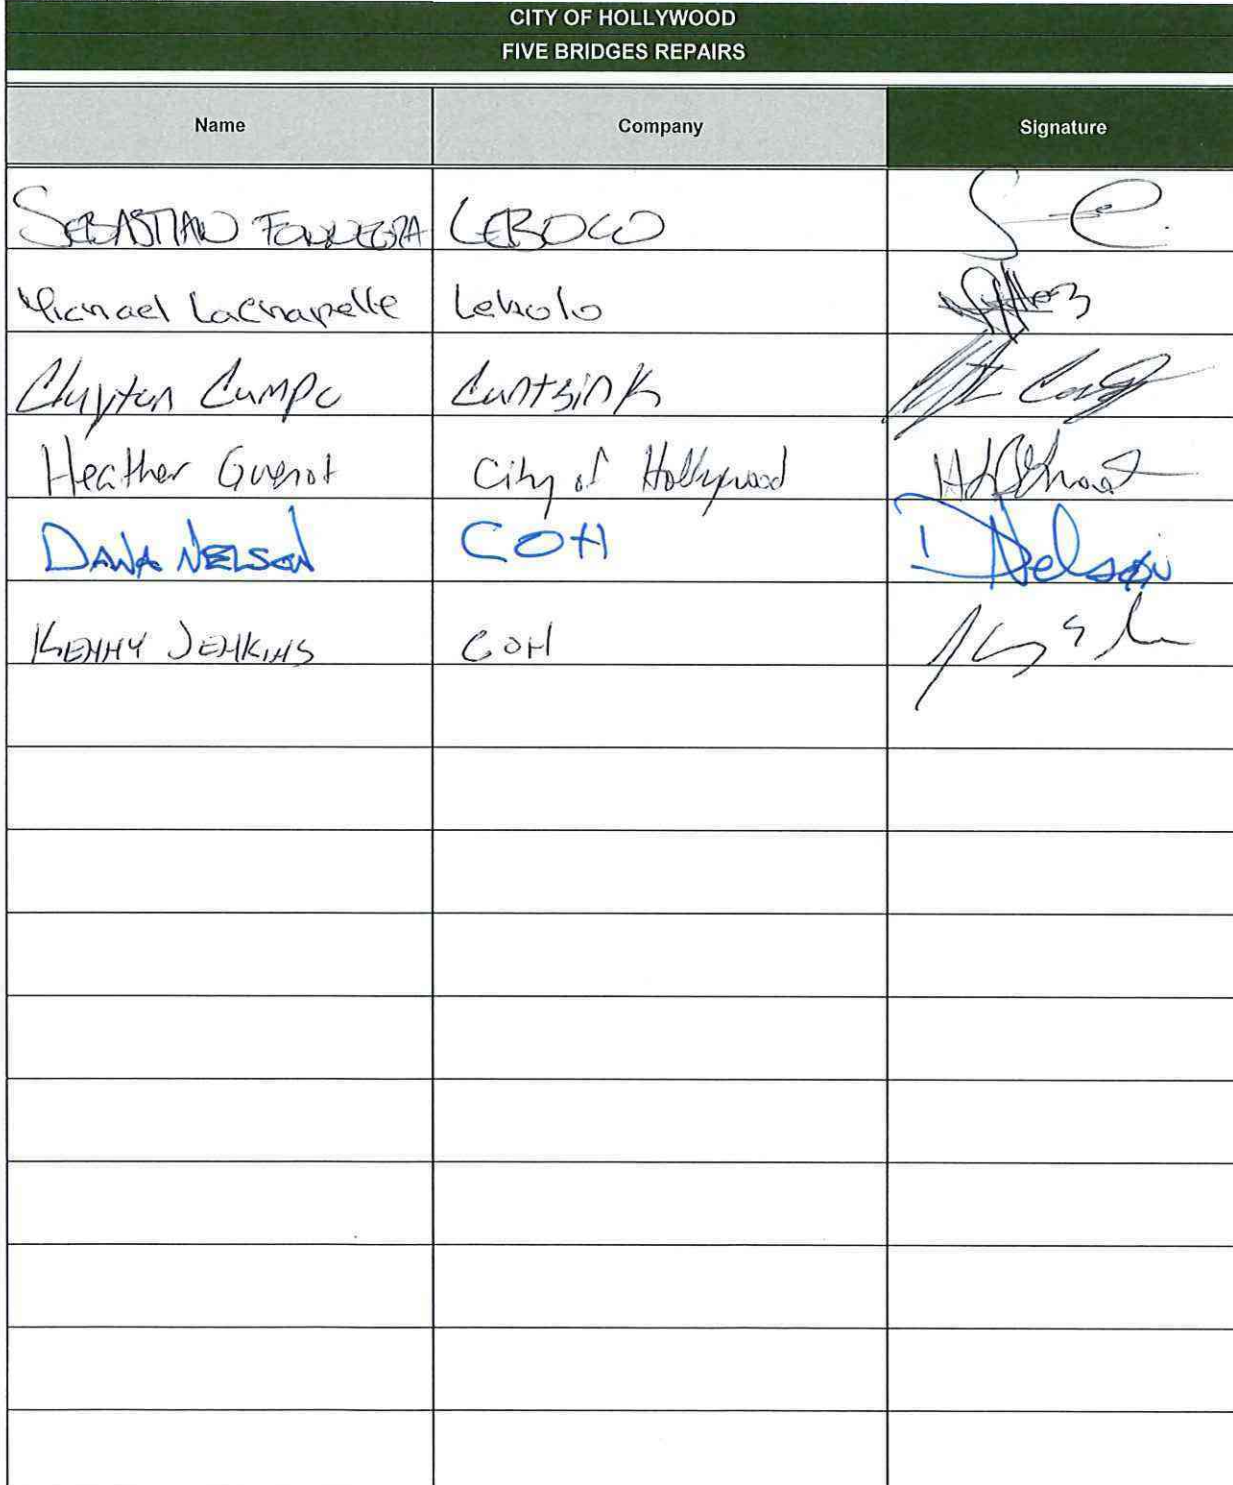 CITY OF HOLLYWOOD
FIVE BRIDGES REPAIRS
Name Company Signature
SEBASTIAN LEBOLO
Michael LaChapelle Lebolo
Clayton
Heather Guerot City of Hollywood
DANA NELSON COH DNelson
KENNY JENKINS COH